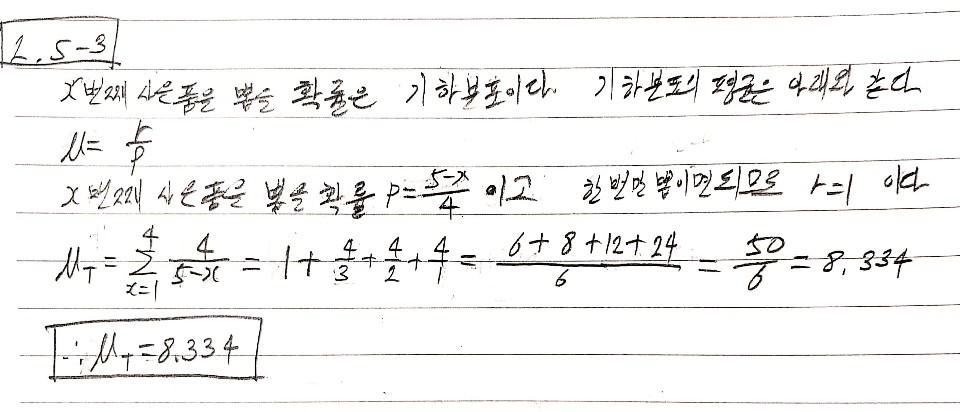 2.5-3
x번째 사은품을 뽑을 확률은 기하분포이다. 기하분포의 평균은 아래와 같다
μ = r/p
x번째 사은품을 뽑을 확률 p = (5-x)/4 이고 한번만 뽑이면되므로 r=1 이다
μ_T = Σ_{x=1}^{4} 4/(5-x) = 1 + 4/3 + 4/2 + 4/1 = (6+8+12+24)/6 = 50/6 = 8.334
∴ μ_T = 8.334